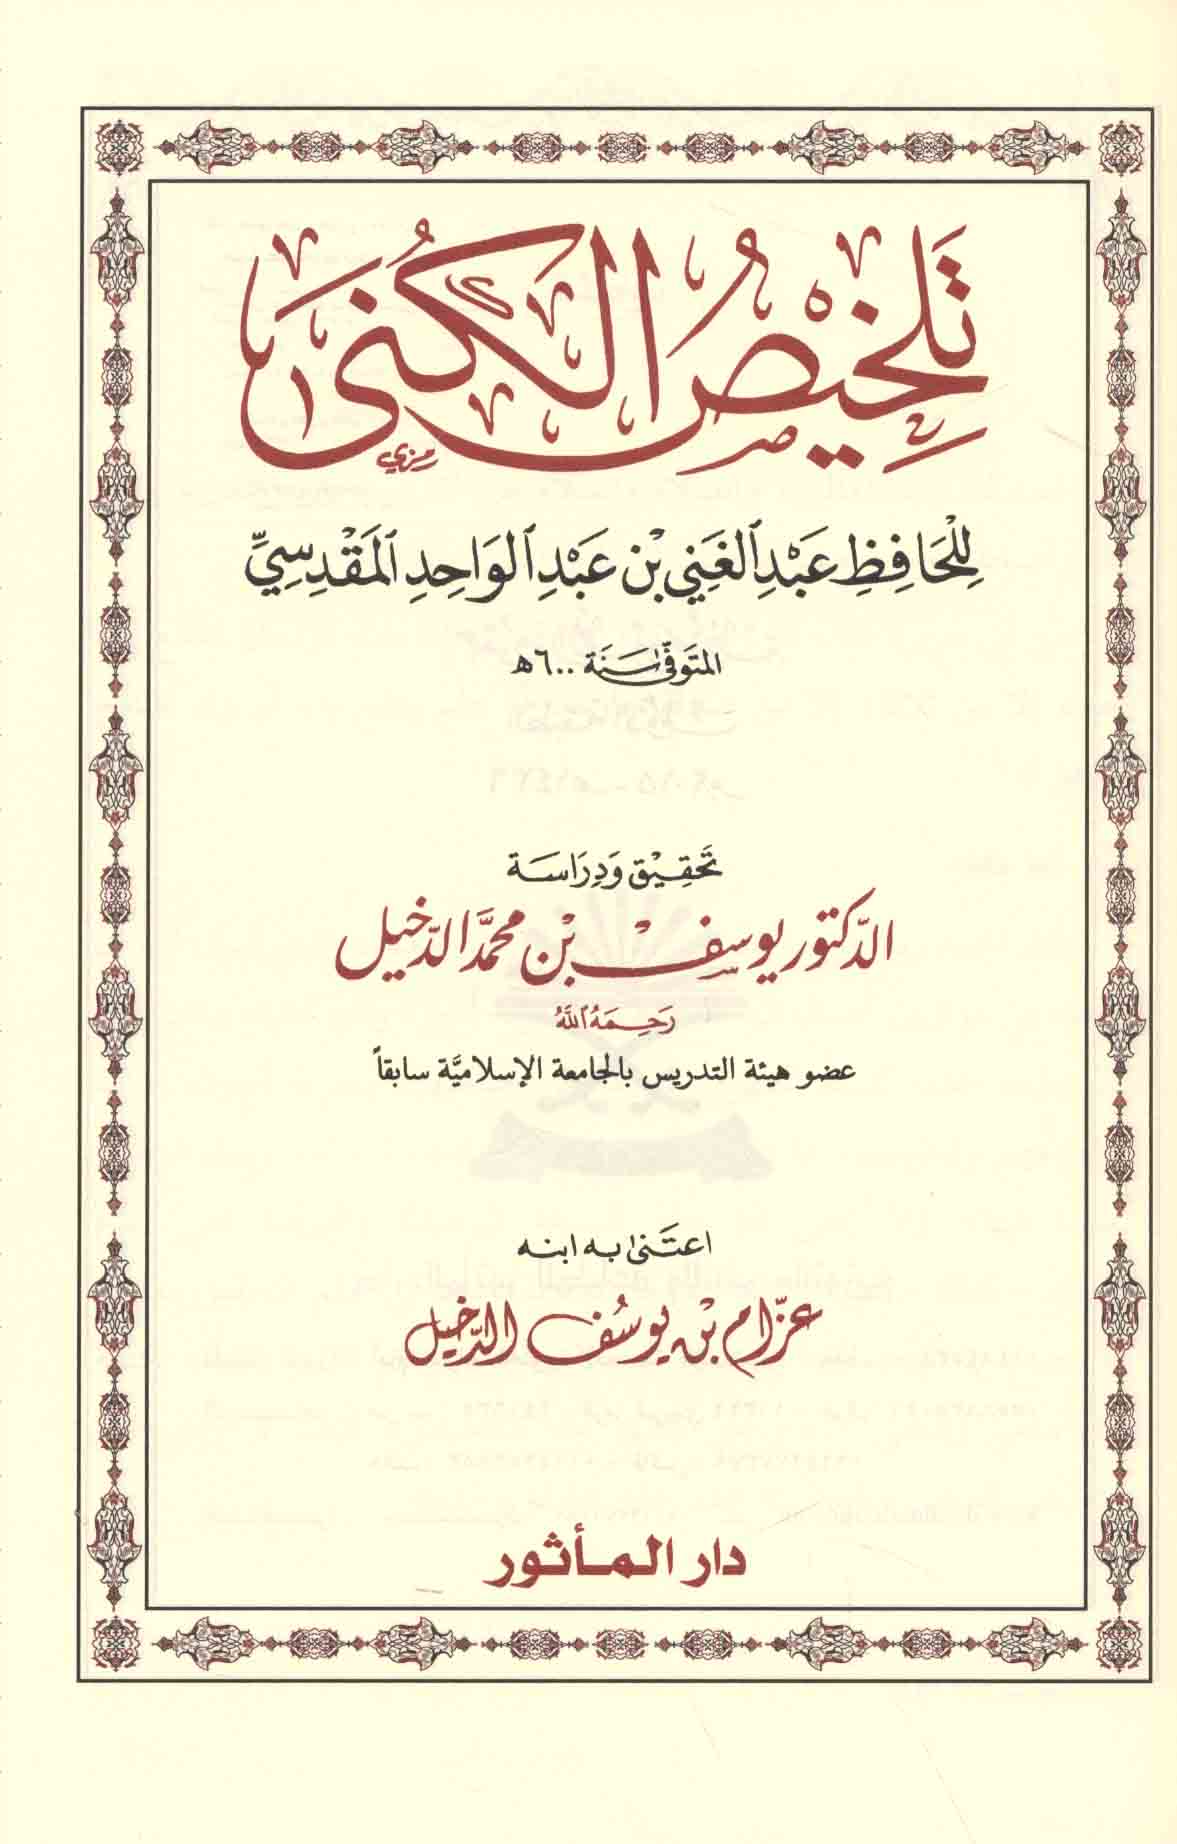 تلخيص الكنى
للحافظ عبد الغني بن عبد الواحد المقدسي
المتوفى سنة ٦٠٠ه
تحقيق ودراسة
الدكتور يوسف بن محمد الدخيل
رحمه الله
عضو هيئة التدريس بالجامعة الإسلاميَّة سابقاً
اعتنى به ابنه
عزّام بن يوسف الدخيل
دار المأثور